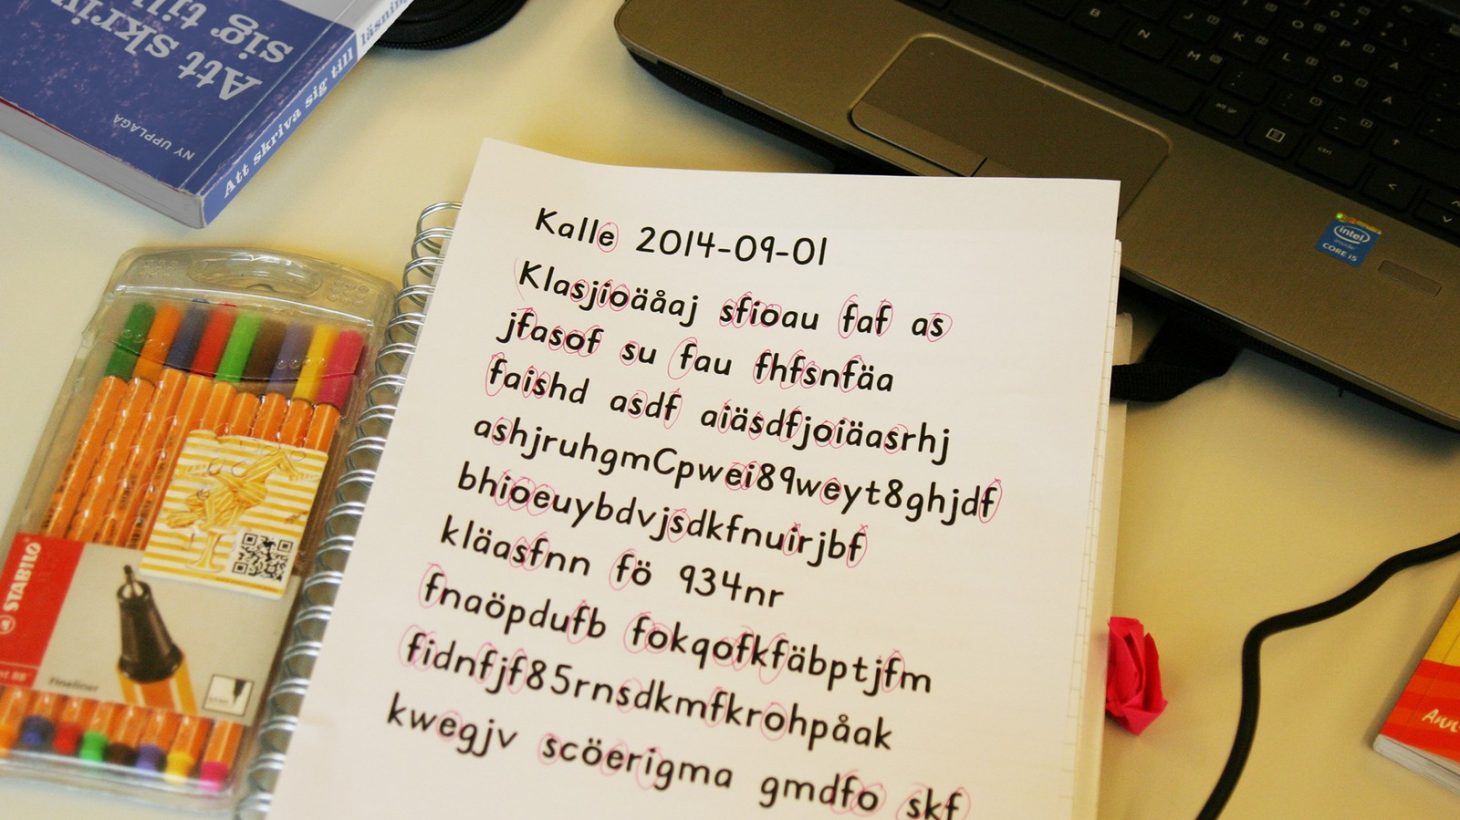 Att skriva
sig till
NY UPPLAGA
Att skriva sig till läsning
intel
inside
CORE i5
Kalle 2014-09-01
Klasjioäåaj sfioau faf as
jfasof su fau fhfsnfäa
faishd asdf aiäsdfjoiäasrhj
ashjruhgmCpwei89weyt8ghjdf
bhioeuybdvjsdkfnuirjbf
kläasfnn fö 934nr
fnaöpdufb fokqofkfäbptjfm
fidnfjf85rnsdkmfkrohpåak
kwegjv scöerigma gmdfo skf
STABILO
Fineliner